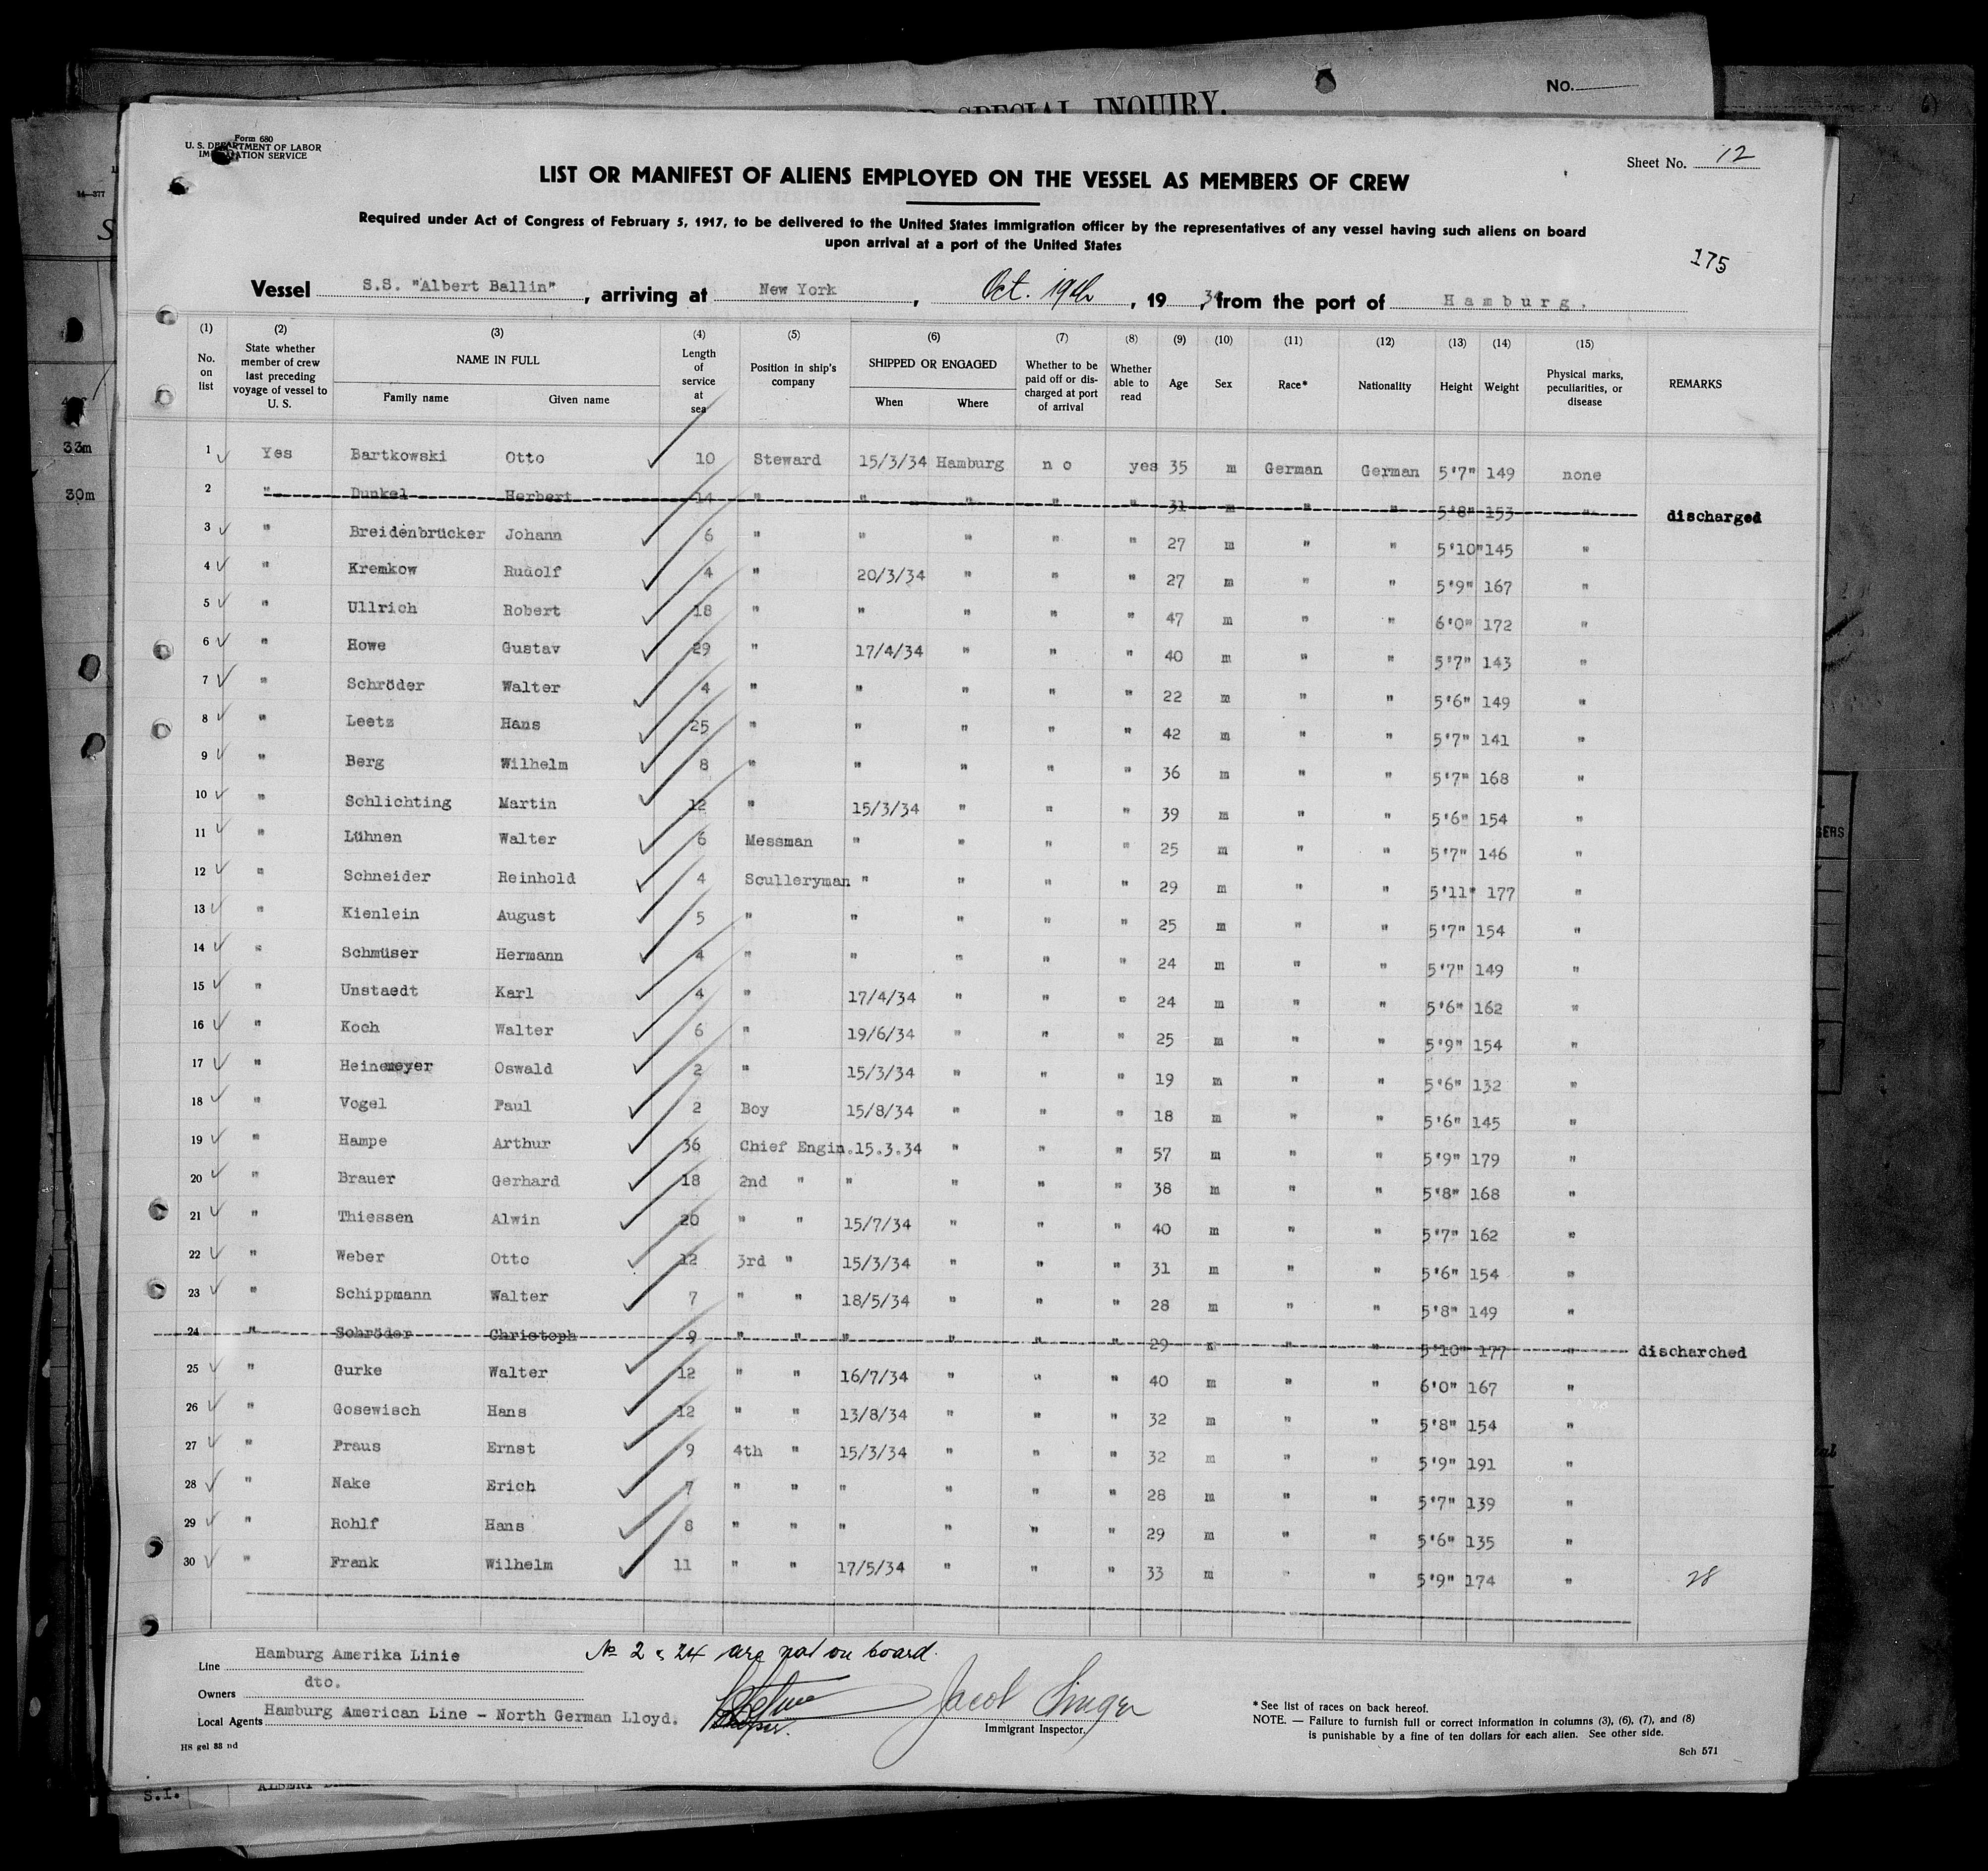 SPECIAL INQUIRY.
No.
Form 680
U. S. DEPARTMENT OF LABOR
IMMIGRATION SERVICE
Sheet No. 12
LIST OR MANIFEST OF ALIENS EMPLOYED ON THE VESSEL AS MEMBERS OF CREW
Required under Act of Congress of February 5, 1917, to be delivered to the United States immigration officer by the representatives of any vessel having such aliens on board
upon arrival at a port of the United States
175
Vessel S.S. "Albert Ballin", arriving at New York, Oct. 19th, 1934, from the port of Hamburg.
(1) (2) (3) (4) (5) (6) (7) (8) (9) (10) (11) (12) (13) (14) (15)
No. on list State whether member of crew last preceding voyage of vessel to U. S. NAME IN FULL Family name Given name Length of service at sea Position in ship's company SHIPPED OR ENGAGED When Where Whether to be paid off or discharged at port of arrival Whether able to read Age Sex Race* Nationality Height Weight Physical marks, peculiarities, or disease REMARKS
1 Yes Bartkowski Otto 10 Steward 15/3/34 Hamburg no yes 35 m German German 5'7" 149 none
2 " Dunkel Herbert 14 " " " " " 31 m " " 5'8" 153 " discharged
3 " Breidenbrücker Johann 6 " " " " " 27 m " " 5'10" 145 "
4 " Kremkow Rudolf 4 " 20/3/34 " " " 27 m " " 5'9" 167 "
5 " Ullrich Robert 18 " " " " " 47 m " " 6'0" 172 "
6 " Howe Gustav 29 " 17/4/34 " " " 40 m " " 5'7" 143 "
7 " Schröder Walter 4 " " " " " 22 m " " 5'6" 149 "
8 " Leetz Hans 25 " " " " " 42 m " " 5'7" 141 "
9 " Berg Wilhelm 8 " " " " " 36 m " " 5'7" 168 "
10 " Schlichting Martin 12 " 15/3/34 " " " 39 m " " 5'6" 154 "
11 " Lühnen Walter 6 Messman " " " " 25 m " " 5'7" 146 "
12 " Schneider Reinhold 4 Sculleryman " " " " 29 m " " 5'11" 177 "
13 " Kienlein August 5 " " " " " 25 m " " 5'7" 154 "
14 " Schmüser Hermann 4 " " " " " 24 m " " 5'7" 149 "
15 " Unstaedt Karl 4 " 17/4/34 " " " 24 m " " 5'6" 162 "
16 " Koch Walter 6 " 19/6/34 " " " 25 m " " 5'9" 154 "
17 " Heinemeyer Oswald 2 " 15/3/34 " " " 19 m " " 5'6" 132 "
18 " Vogel Paul 2 Boy 15/8/34 " " " 18 m " " 5'6" 145 "
19 " Hampe Arthur 36 Chief Engin. 15.3.34 " " " 57 m " " 5'9" 179 "
20 " Brauer Gerhard 18 2nd " " " " " 38 m " " 5'8" 168 "
21 " Thiessen Alwin 20 " " 15/7/34 " " " 40 m " " 5'7" 162 "
22 " Weber Otto 12 3rd " 15/3/34 " " " 31 m " " 5'6" 154 "
23 " Schippmann Walter 7 " " 18/5/34 " " " 28 m " " 5'8" 149 "
24 " Schröder Christoph 9 " " " " " " 29 m " " 5'10" 177 " discharched
25 " Gurke Walter 12 " " 16/7/34 " " " 40 m " " 6'0" 167 "
26 " Gosewisch Hans 12 " " 13/8/34 " " " 32 m " " 5'8" 154 "
27 " Praus Ernst 9 4th " 15/3/34 " " " 32 m " " 5'9" 191 "
28 " Nake Erich 7 " " " " " " 28 m " " 5'7" 139 "
29 " Rohlf Hans 8 " " " " " " 29 m " " 5'6" 135 "
30 " Frank Wilhelm 11 " " 17/5/34 " " " 33 m " " 5'9" 174 " 28
No 2 & 24 are not on board.
Line Hamburg Amerika Linie
Owners dto.
Local Agents Hamburg American Line - North German Lloyd.
Jacob Singer
Immigrant Inspector.
* See list of races on back hereof.
NOTE. — Failure to furnish full or correct information in columns (3), (6), (7), and (8)
is punishable by a fine of ten dollars for each alien. See other side.
HS gel 33 nd
Sch 571
33m
30m
S.I.